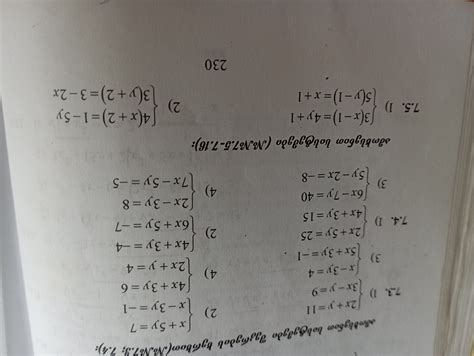 ამოხსენით სისტემები შეკრების ხერხით (№№7.3; 7.4):
7.3. 1) { 2x + y = 11 2) { x + 5y = 7
3x − y = 9 x − 3y = −1
3) { x − 3y = 4 4) { 4x + 3y = 6
5x + 3y = −1 2x + y = 4
7.4. 1) { 2x + 5y = 25 2) { 4x + 3y = −4
4x + 3y = 15 6x + 5y = −7
3) { 6x − 7y = 40 4) { 2x − 3y = 8
5y − 2x = −8 7x − 5y = −5
ამოხსენით სისტემები (№№7.5-7.16):
7.5. 1) { 3(x − 1) = 4y + 1 2) { 4(x + 2) = 1 − 5y
5(y − 1) = x + 1 3(y + 2) = 3 − 2x
230